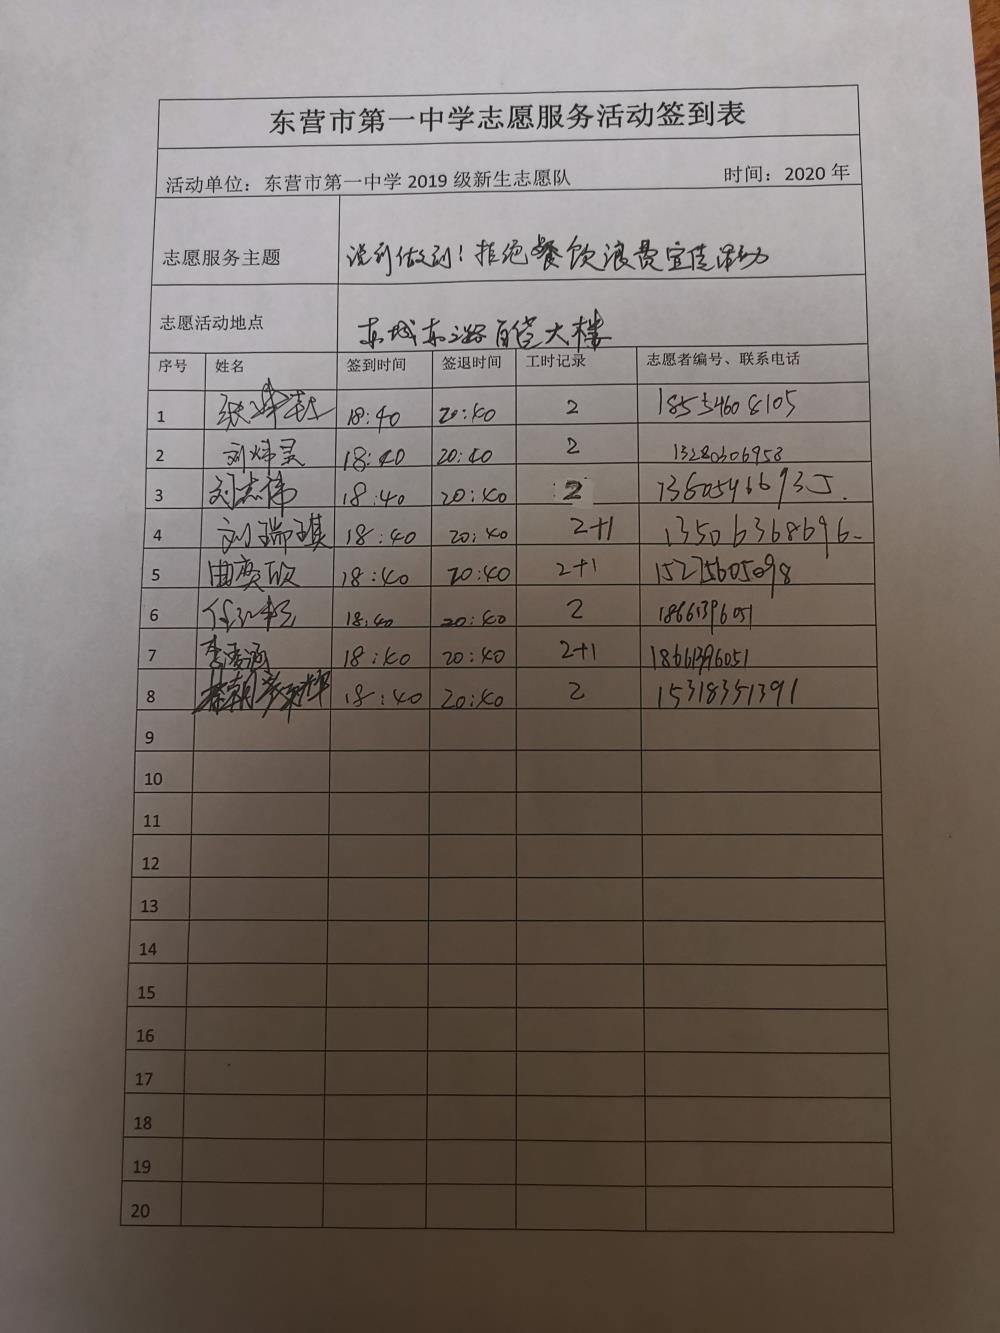 东营市第一中学志愿服务活动签到表
活动单位：东营市第一中学 2019 级新生志愿队 时间：2020 年
志愿服务主题 说到做到！拒绝餐饮浪费宣传活动
志愿活动地点 东城东三路百货大楼
序号 姓名 签到时间 签退时间 工时记录 志愿者编号、联系电话
1 18:40 20:40 2 18554608105
2 刘炜昊 18:40 20:40 2 13280306953
3 刘志伟 18:40 20:40 2
4 刘瑞琪 18:40 20:40 2+1 13506368696
5 曲奕欣 18:40 20:40 2+1 15275605098
6 18:40 20:40 2 18661396051
7 18:40 20:40 2+1 18661396051
8 18:40 20:40 2 15318351391
9
10
11
12
13
14
15
16
17
18
19
20